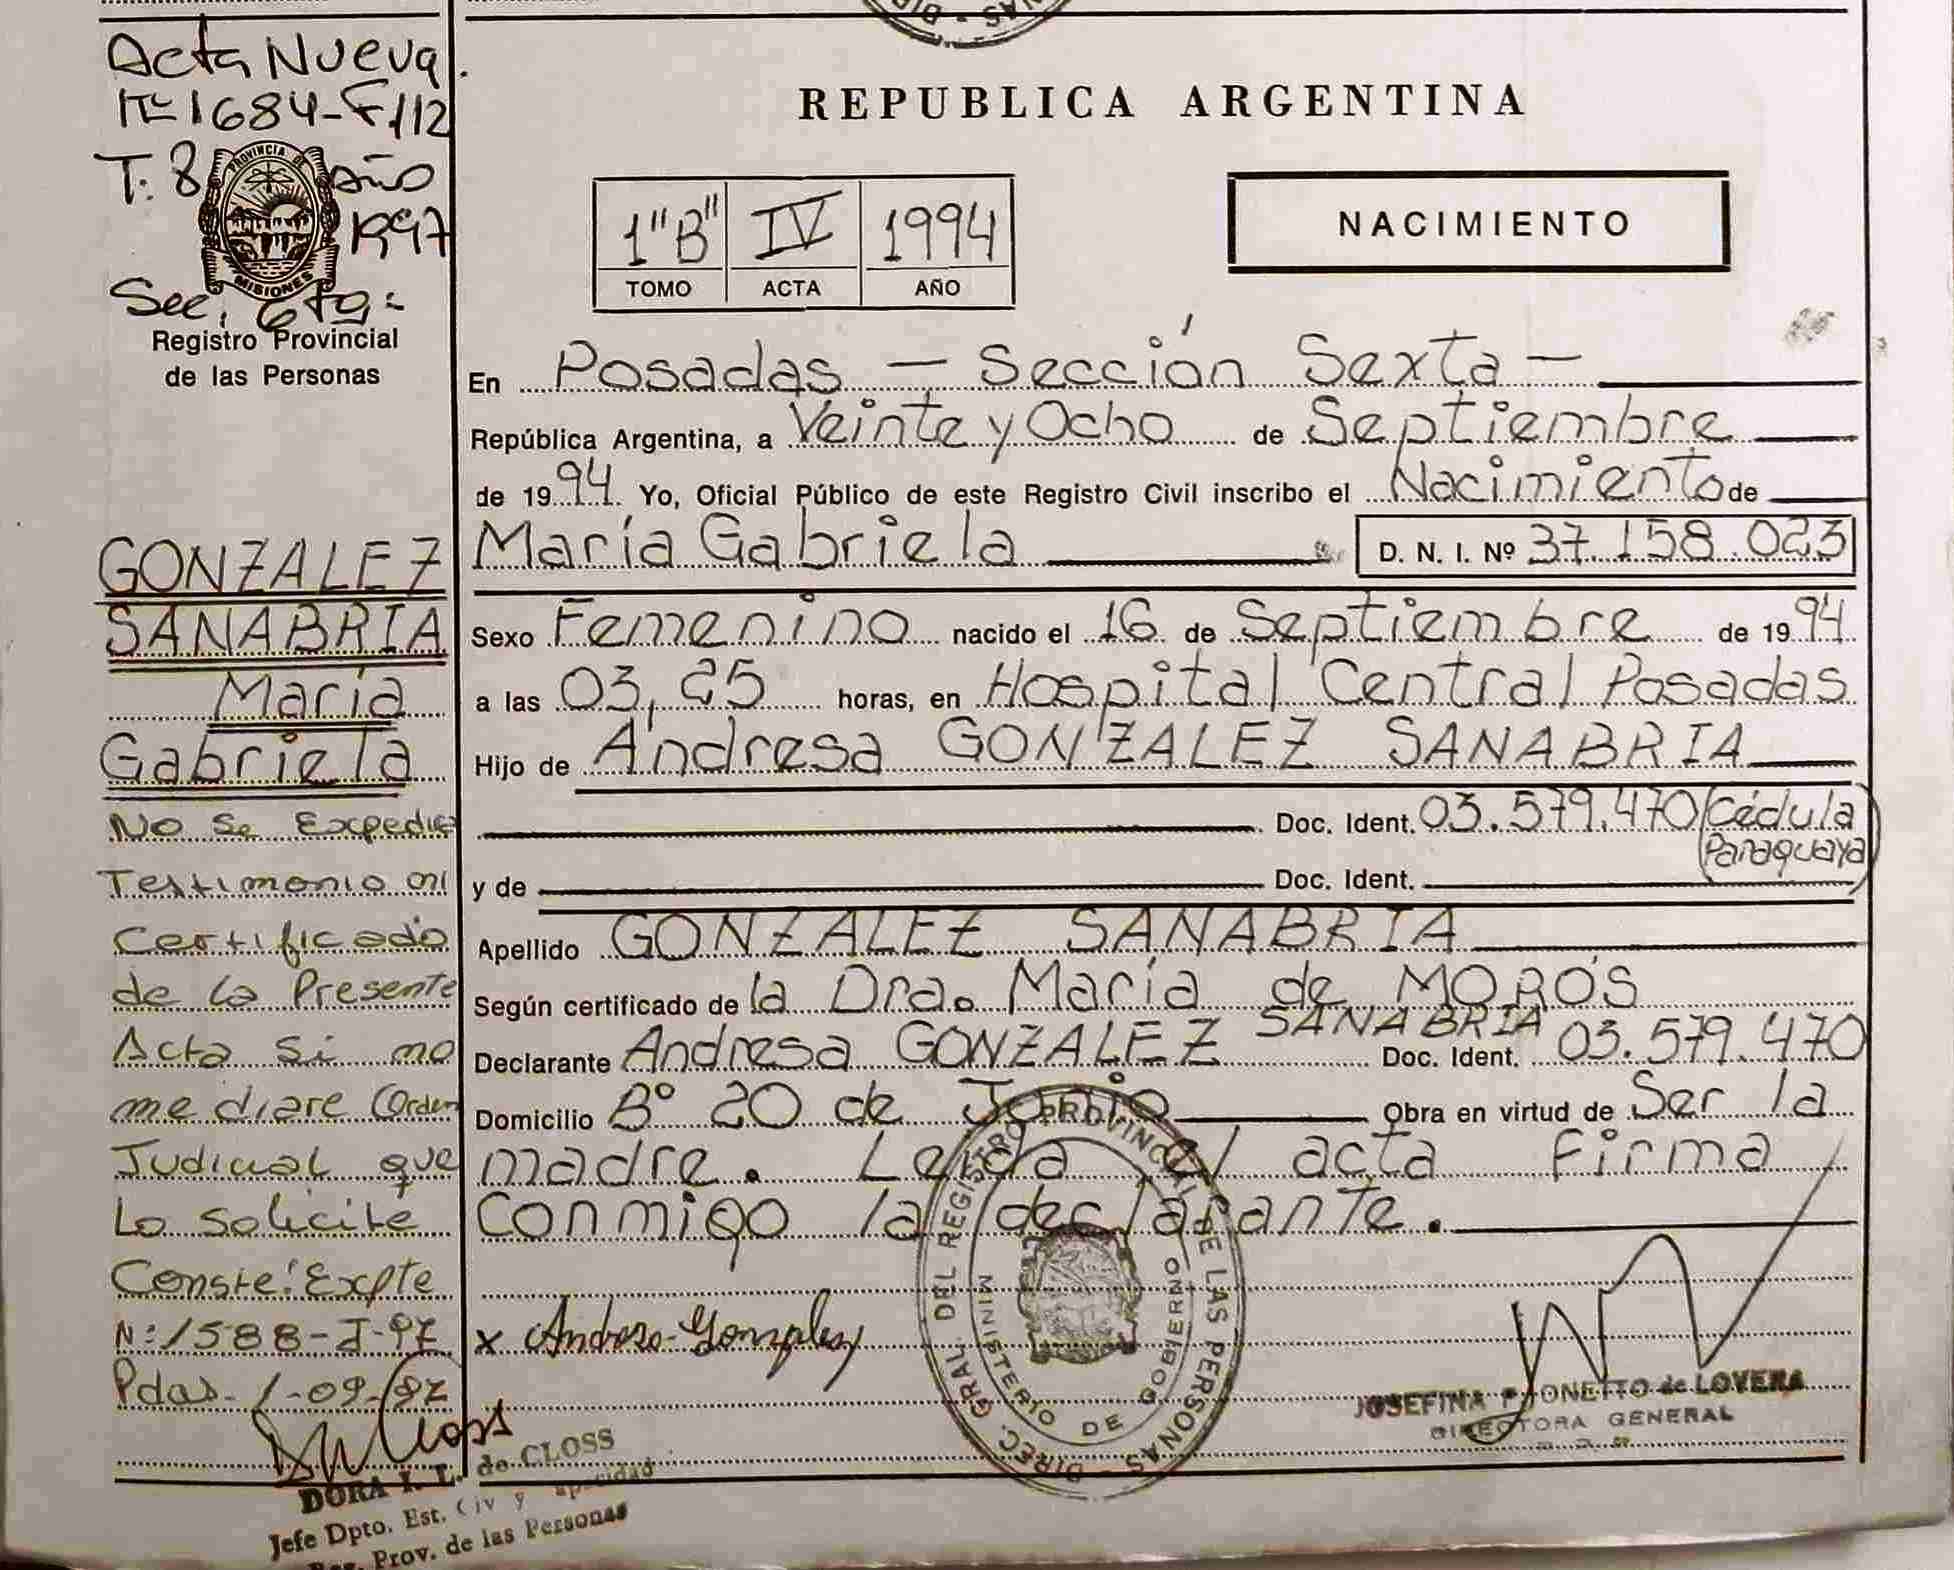 Acta Nueva.
Nº 1684-F/112
T. 8 año
1997
Sec. 6ta.
PROVINCIA DE
MISIONES
Registro Provincial
de las Personas
GONZALEZ
SANABRIA
María
Gabriela
No Se Expedirá
Testimonio ni
Certificado
de la Presente
Acta Si no
mediare Orden
Judicial que
Lo solicite
Conste: Expte
Nº 1588-J-97
Pdas. 1-09-97
DORA I. L. de CLOSS
Jefe Dpto. Est. Civ y
Reg. Prov. de las Personas
REPUBLICA ARGENTINA
1"B" IV 1994
TOMO ACTA AÑO
NACIMIENTO
En Posadas — Sección Sexta —
República Argentina, a Veinte y Ocho de Septiembre
de 1994 Yo, Oficial Público de este Registro Civil inscribo el Nacimiento de
María Gabriela D. N. I. Nº 37.158.023
Sexo Femenino nacido el 16 de Septiembre de 1994
a las 03,25 horas, en Hospital Central Posadas
Hijo de Andresa GONZALEZ SANABRIA
Doc. Ident. 03.579.470 (Cédula
Paraguaya)
y de Doc. Ident.
Apellido GONZALEZ SANABRIA
Según certificado de la Dra. María de MOROS
Declarante Andresa GONZALEZ SANABRIA Doc. Ident. 03.579.470
Domicilio Bº 20 de Junio Obra en virtud de Ser la
madre. Leída el acta firma
conmigo la declarante.
x Andresa Gonzalez
DIREC. GRAL. DEL REGISTRO PROVINCIAL DE LAS PERSONAS
MINISTERIO DE GOBIERNO
de LOVERA
DIRECTORA GENERAL